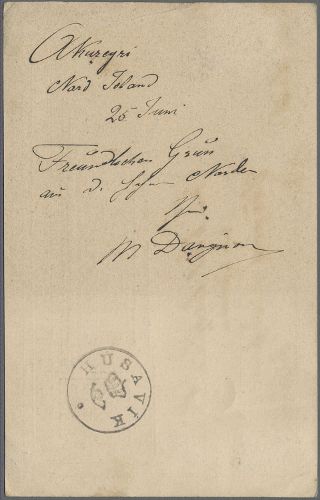 Akuregri
Nord Island
25 Juni
Freundlichen Gruss
aus d. Norden
M
HUSAVIK